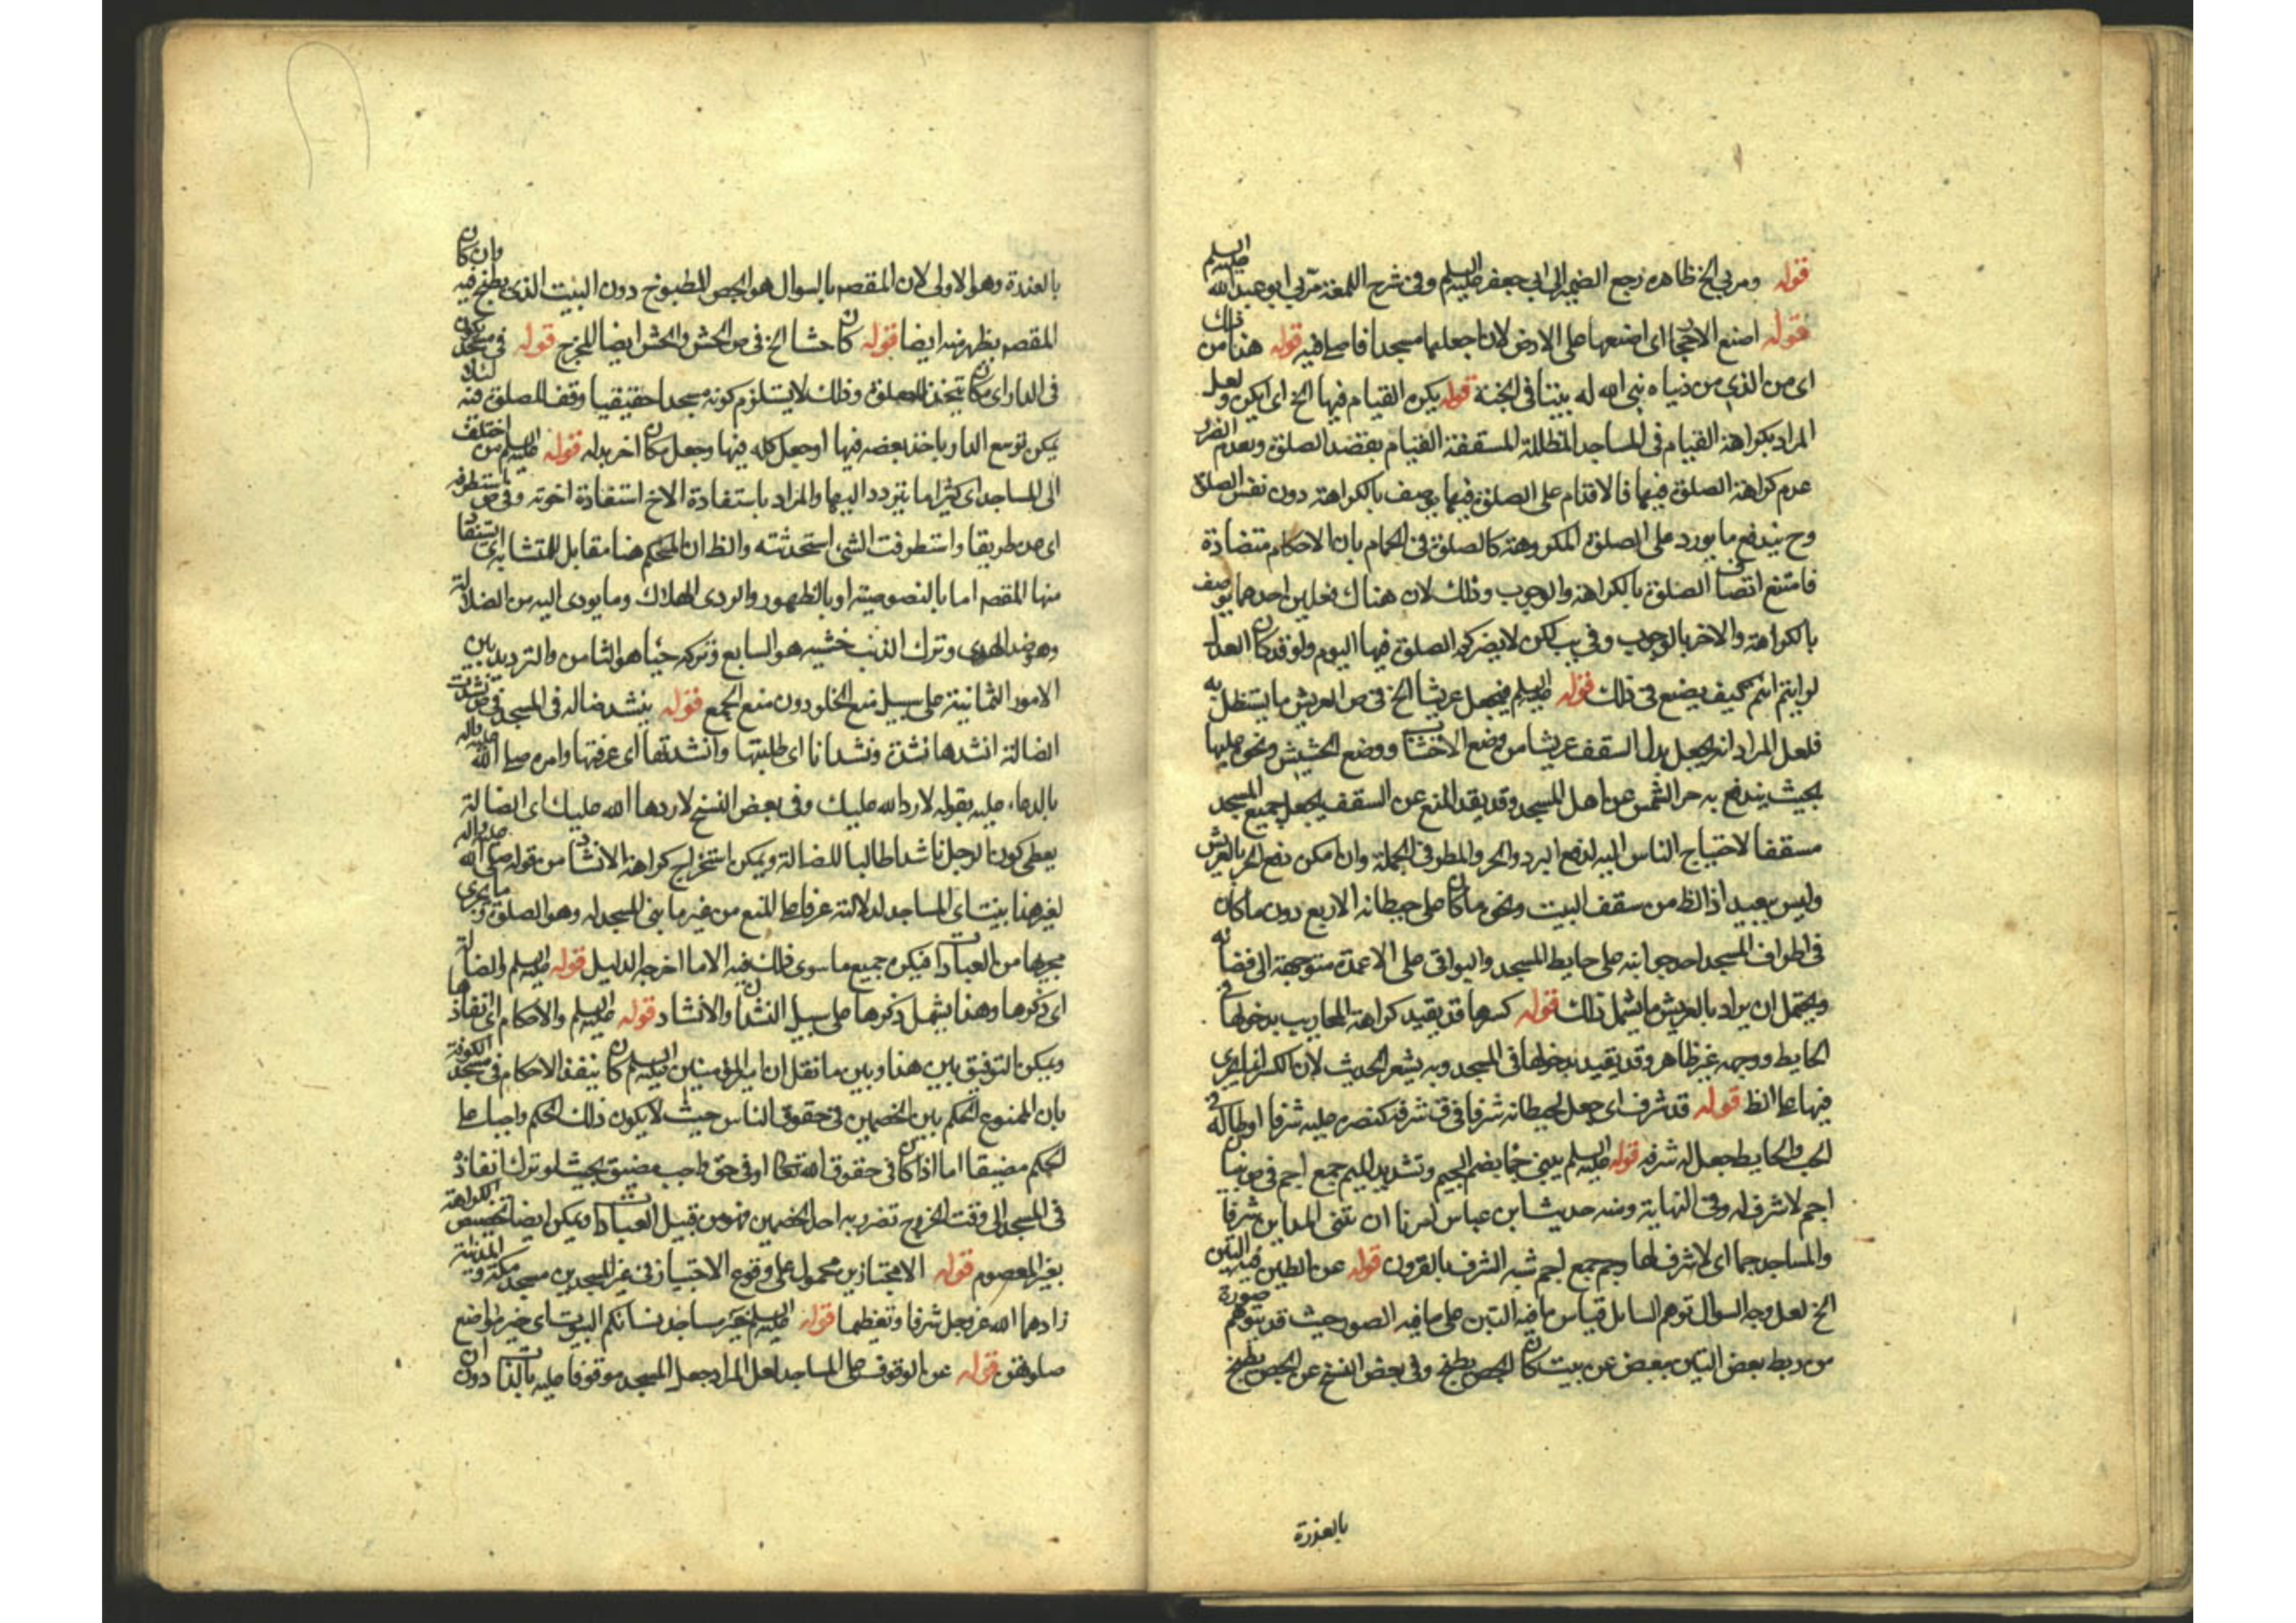 قوله ومر بي الخ ظاهره رجع الضمير الى ابي جعفر عليه السلم وفى شرح اللمعة مر بي ابو عبد الله عليه السلم
قوله اصنع الاحجار اى اضعها على الارض لان اجعلها مسجدا فاصلى فيه قوله هذا من ذلك
اى من الذى من بناه بنى الله له بيتا فى الجنة قوله يكره القيام فيها الخ اى يكره ولعل
المراد بكراهة القيام فى المساجد المظللة المسقفة القيام بقصد الصلوة وبعدم الضرر
عدم كراهة الصلوة فيها فالاقدام على الصلوة فيها يوصف بالكراهة دون نفس الصلوة
وح يندفع ما يورد على الصلوة المكروهة كالصلوة فى الحمام بان الاحكام متضادة
فامتنع اتصاف الصلوة بالكراهة والوجوب وذلك لان هناك فعلين احدهما يوصف
بالكراهة والاخر بالوجوب وفى يب لكن لا يضركم الصلوة فيها اليوم ولو قد كان العدل
لرايتم انتم كيف يصنع فى ذلك قوله عليه السلم فيجعل عريشا الخ فى ص العريش ما يستظل به
فلعل المراد انه يجعل بدل السقف عريشا من وضع الاخشاب ووضع الحشيش ونحوه عليها
بحيث يندفع به حر الشمس عن اهل المسجد وقد يقيد المنع عن السقف بجعل جميع المسجد
مسقفا لاحتياج الناس اليه لدفع البرد والحر والمطر فى الجملة وان امكن دفع الحر بالعريش
وليس ببعيد اذ الظ من سقف البيت ونحوه ما كان على حيطانه الاربع دون ما كان
فى اطراف المسجد احد جوانبه على حايط المسجد والبواقى على الاعمدة متوجهة الى فضائه
ويحتمل ان يراد بالعريش ما يشمل ذلك قوله كسرها قد يقيد كراهة المحاريب بدخولها فى
الحايط ووجهه غير ظاهر وقد يقيد بدخولها فى المسجد وبه يشعر الحديث لان الكسر انما يجرى
فيها على الظ قوله قد شرف اى جعل لحيطانه شرفا فى ق شرفه كنصره عليه شرفا او طاله فى
الحب والحايط جعل له شرفة قوله عليه السلم يبنى جما بضم الجيم وتشديد الميم جمع اجم فى ص بنيان
اجم لا شرف له وفى النهاية ومنه حديث ابن عباس امرنا ان نبنى المداين شرفا
والمساجد جما اى لا شرف لها وجم جمع اجم شبه الشرف بالقرون قوله عن الطين فيه التبن
الخ لعل وجه السوال توهم السايل قياس ما فيه التبن على ما فيه الصور حيث قد يتوهم صورة
من ربط بعض التبن ببعض عن بيت كان الجص يطبخ وفى بعض النسخ عن الجص يطبخ
بالعذرة
بالعذرة وهو الاولى لان المقصم بالسوال هو الجص المطبوخ دون البيت الذى يطبخ فيه وان كان
المقصم يظهر منه ايضا قوله كان حشا الخ فى ص الحش والحش ايضا المخرج قوله فى مسجد يكون
فى الدار اى مكان يتخذ للصلوة وذلك لا يستلزم كونه مسجدا حقيقيا وقف للصلوة فيه لذلك
يمكن توسع الدار باخذ بعضه فيها او جعل كله فيها وجعل مكان اخر بدله قوله عليه السلم من اختلف
الى المساجد اى كثيرا ما يتردد اليها والمراد باستفادة الاخ استفادة اخوته وفى ص استطرفه
اى من طريقا واستطرفت الشئ استحدثته والظ ان المحكم هنا مقابل المتشابه اى يستفاد
منها المقصم اما بالنصوصية او بالظهور والردى الهلاك وما يودى اليه من الضلالة
وهو ضد الهدى وترك الذنب خشية هو السابع وتركه حياء هو الثامن والترديد بين
الامور الثمانية على سبيل منع الخلو دون منع الجمع قوله ينشد ضاله فى المسجد فى ص نشدت
الضالة انشدها نشدة ونشدانا اى طلبتها وانشدتها اى عرفتها وامره صلى الله عليه واله
بالدعاء عليه بقوله لا رد الله عليك وفى بعض النسخ لا ردها الله عليك اى الضالة
يعطى كون الرجل ناشدا طالبا للضالة ويمكن استخراج كراهة الانشاد من قوله صلى الله عليه واله
لغير هذا بنيت اى المساجد لدلالته عرفا على المنع من غير ما بنى المسجد له وهو الصلوة وما يجرى
مجريها من العبادات فيكره جميع ما سوى ذلك فيه الا ما اخرجه الدليل قوله عليه السلم والضالة
اى ذكرها وهذا يشمل ذكرها على سبيل النشدان والانشاد قوله عليه السلم والاحكام اى انفاذها
ويمكن التوفيق بين هذا وبين ما نقل ان امير المؤمنين عليه السلم كان ينفذ الاحكام فى مسجد الكوفة
بان الممنوع الحكم بين الخصمين فى حقوق الناس حيث لا يكون ذلك الحكم واجبا على
الحكم مضيقا اما اذا كان فى حقوق الله تعالى او فى حق واجب مضيق بحيث لو ترك انفاذه
فى المسجد الى وقت الخروج تضرر به احد الخصمين فهو من قبيل العبادات ويمكن ايضا تخصيص الكراهة
بغير المعصوم قوله الا مجتازين محمول على وقوع الاجتياز فى غير المسجدين مسجد مكة والمدينة
زادهما الله عز وجل شرفا وتعظيما قوله عليه السلم خير مساجد نسائكم البيوت اى خير مواضع
صلوتهن قوله عن الوقوف على المساجد لعل المراد جعل المسجد موقوفا عليه بالذات دون ان